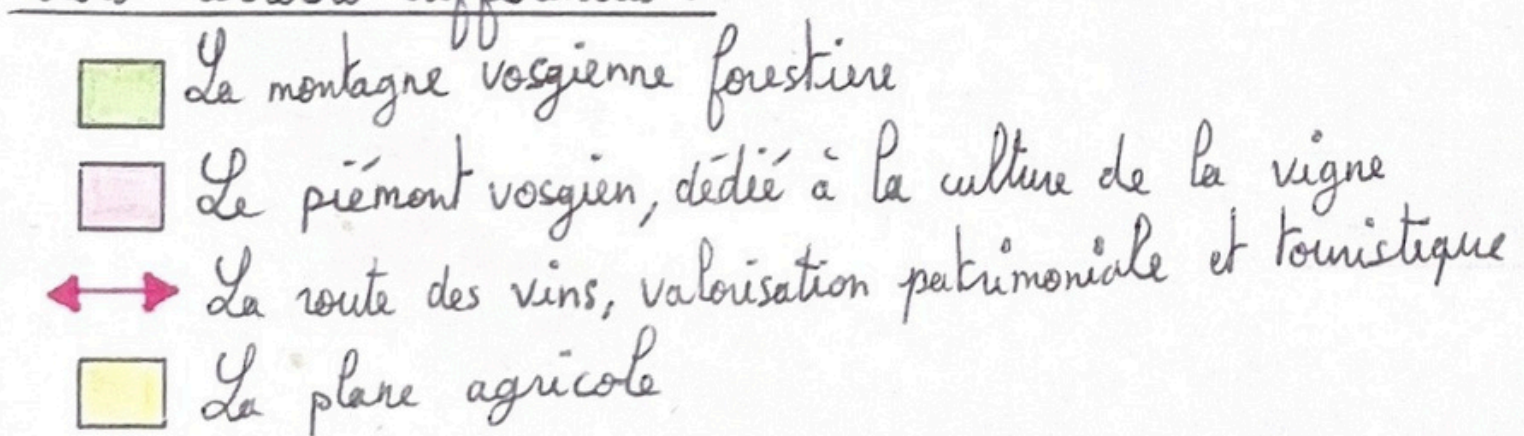 La montagne vosgienne forestière
Le piémont vosgien, dédié à la culture de la vigne
La route des vins, valorisation patrimoniale et touristique
La plaine agricole